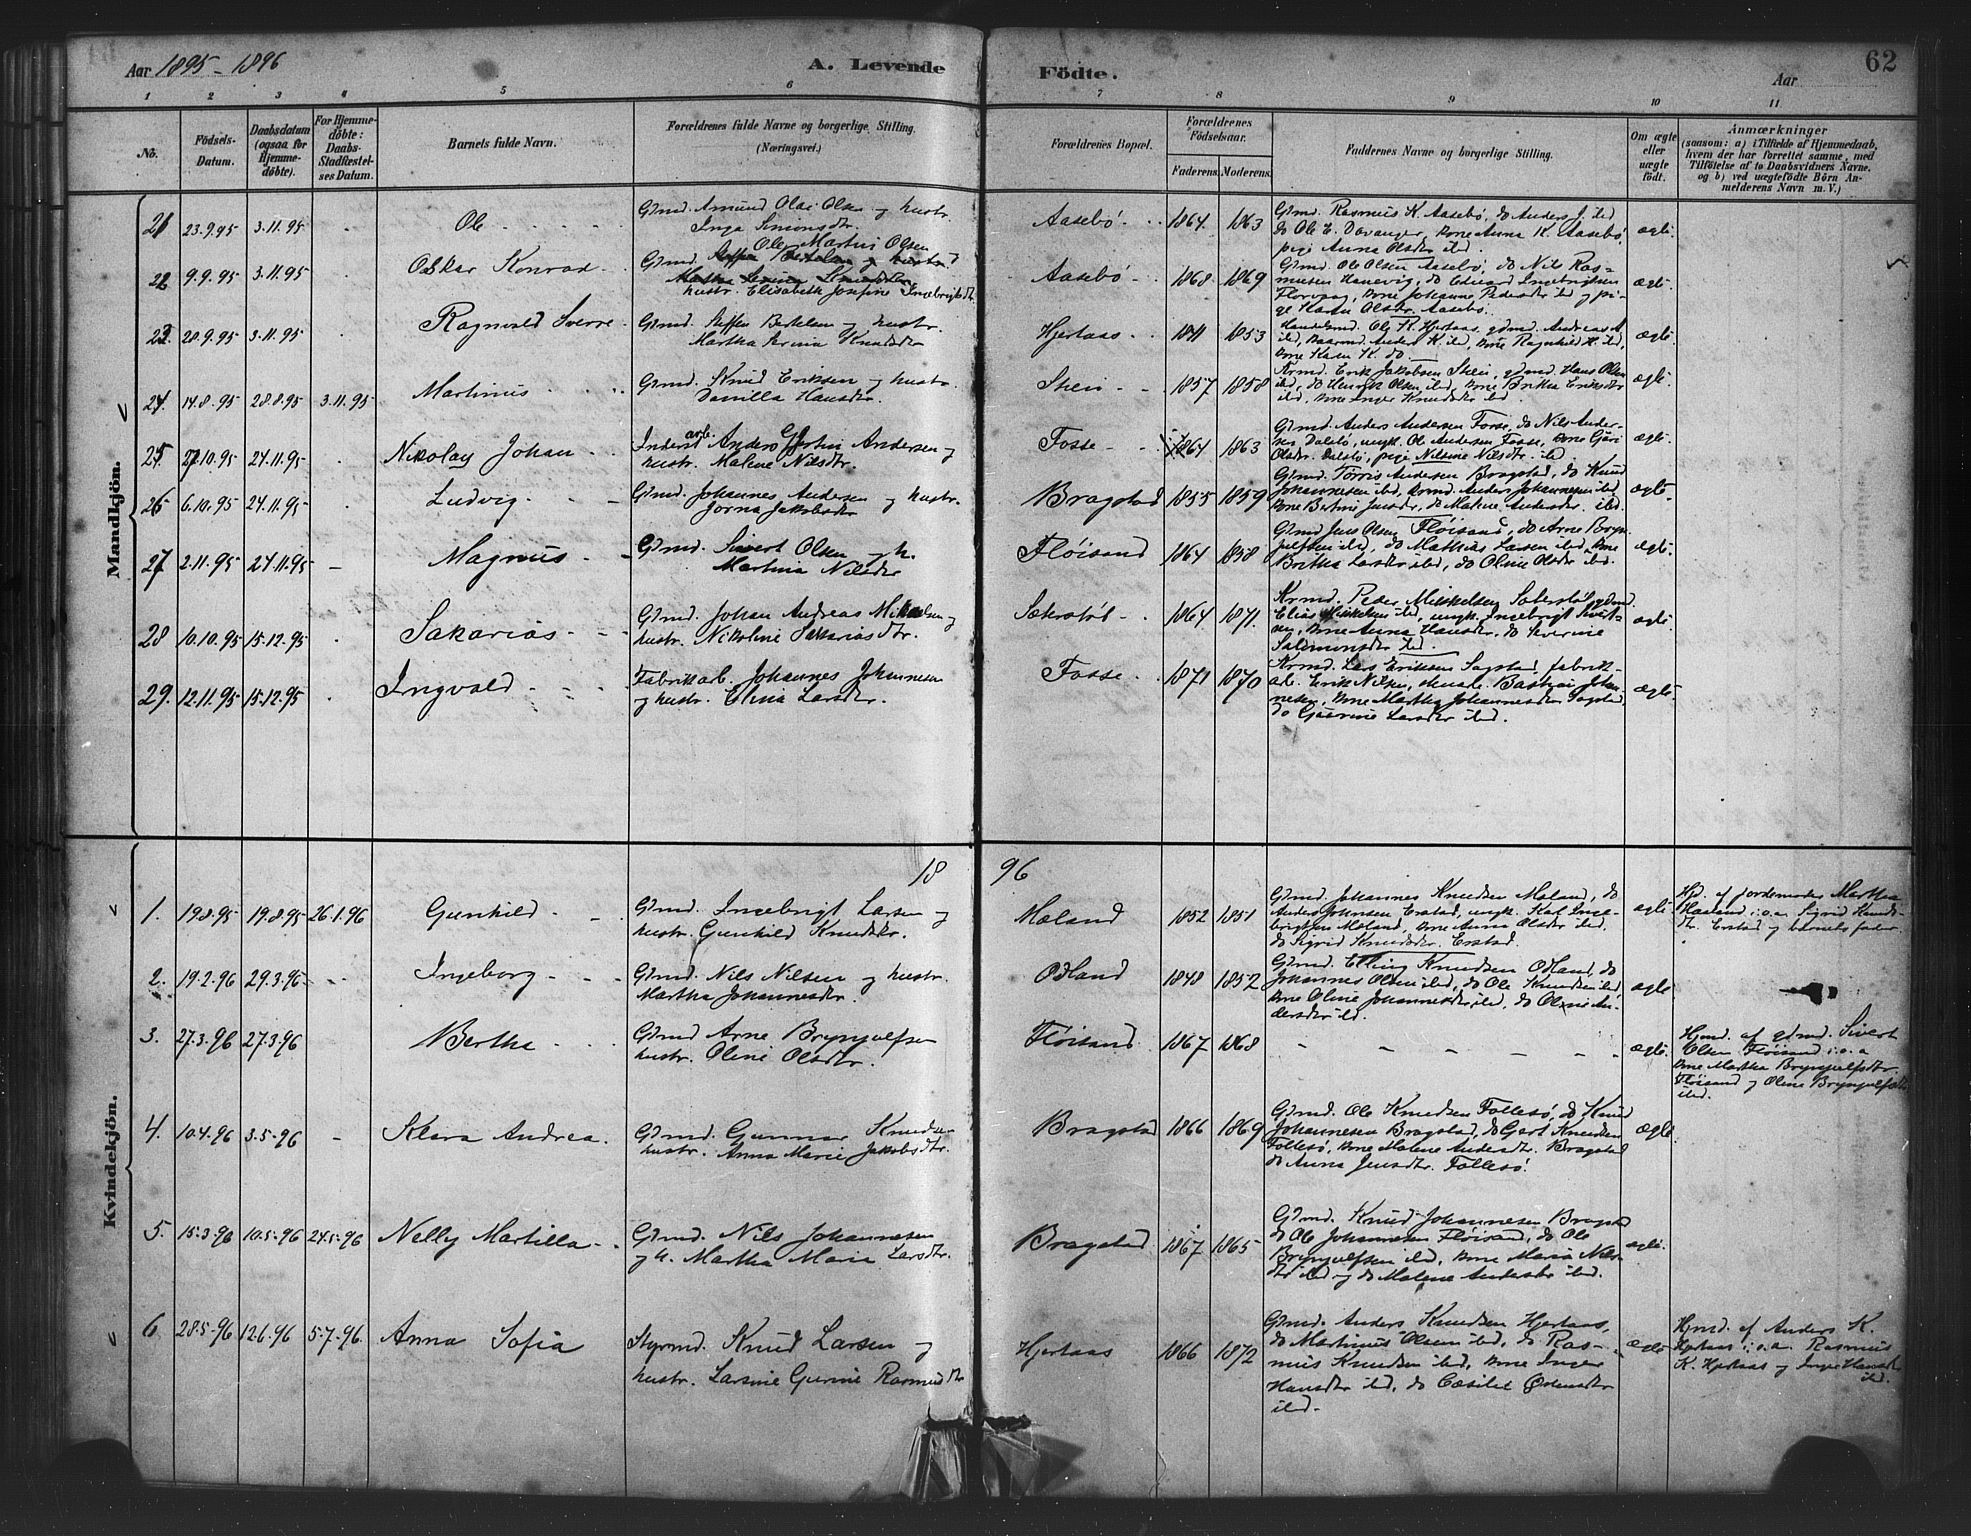 Aar 1895-1896
A. Levende Födte.
Aar
62
1 2 3 4 5 6 7 8 9 10 11
No.
Födsels-Datum.
Daabsdatum (ogsaa for Hjemme-döbte).
For Hjemme-döbte: Daabs-Stadfæstel-ses Datum.
Barnets fulde Navn.
Forældrenes fulde Navne og borgerlige Stilling. (Næringsvei.)
Forældrenes Bopæl.
Forældrenes Födselsaar.
Faderens. Moderens.
Faddernes Navne og borgerlige Stilling.
Om ægte eller uægte födt.
Anmærkninger
(saasom: a) i Tilfælde af Hjemmedaab,
hvem der har forrettet samme, med
Tilföielse af to Daabsvidners Navne,
og b) ved uægtefödte Börn An-
melderens Navn m. V.)
Mandkjön.
21 23.9.95 3.11.95 Ole
Gmd. Amund Olai Olsen og hustr.
Inga Simonsdtr.
Aasebö 1864 1863
Gmd. Rasmus K. Aasebö, do Anders J. ibd
do Ole E. Davanger, kone Anna K. Aasebö,
pige Anna Olsdtr ibd.
ægte
22 9.9.95 3.11.95 Oskar Konrad
Gmd. Ole Martin Olsen
hustr. Elisabeth Josefine Ingebrigtsdtr.
Aasebö 1868 1869
Gmd. Ole Olsen Aasebö, do Nils Ras-
musen Hanevig, do Edvard Ingebrigtsen
Florvaag, kone Johanne Pedersdtr ibd og pi-
ge Olsdtr. Aasebö.
ægte
23 28.9.95 3.11.95 Ragnvald Sverre
Gmd. Steffen Bertelsen og hustr.
Martha Knudsdtr
Hjertaas 1853
Handelsmd. Ole K. Hjertaas, gdmd. Andreas A
ibd, Anders K ibd, kone Ragnhild H. ibd,
kone Karen K. do
ægte
24 14.8.95 28.8.95 3.11.95 Martinus
Gmd. Knud Eriksen og hustr.
Hansdtr.
Skei 1857 1858
Krmd. Erik Jakobsen Skei, gdmd. Hans Olsen
ibd, do Henrik Olsen ibd, kone Britha Eriksdtr
ibd, kone Inger Knudsdtr ibd.
ægte
25 27.10.95 24.11.95 Nikolay Johan
Inderst arb. Anders Andersen og
hustr. Malene Nilsdtr.
Fosse 1864 1863
Gmd Anders Andersen Fosse, do Nils Ander-
sen Dalsbö, ungk. Ole Andersen Fosse, kone
Olsdtr. Dalsbö, pige Nilsine Nilsdtr ibd.
ægte
26 6.10.95 24.11.95 Ludvig
Gmd. Johannes Andersen og hustr.
Jorna Jakobsdtr
Bragstad 1855 1859
Gmd. Torris Andersen Bragstad, do Knud
Johannesen ibd, krmd. Anders Johannesen ibd
kone Bertine Jensdtr, do Malene Andersdtr. ibd.
ægte
27 2.11.95 24.11.95 Magnus
Gmd. Sivert Olsen og h.
Martina Nilsdtr
Flöisand 1864 1858
Gmd Jens Olsen Flöisand, do Arne Bryn-
julfsen ibd, do Mathias Larsen ibd, kone
Britha Larsdtr ibd, do Oline Olsdtr ibd.
ægte
28 10.10.95 15.12.95 Sakarias
Gmd. Johan Andreas Mikkelsen og
hustr. Nikoline Sakariasdtr.
Sæterstöl 1864 1871.
Krmd. Peder Mikkelsen Sæterstöl, gdmd
Elias Mikkelsen ibd, ungk. Ingebrigt Sivert-
sen, kone Anna Hansdtr, do Severine
Salomonsdtr ibd.
ægte
29. 12.11.95 15.12.95 Ingvald
Fabrikarb. Johannes Johannesen
og hustr. Elina Larsdtr.
Fosse 1871 1870
Krmd. Lars Eriksen Sagstad, fabrik-
arb. Erik Nilsen, Bastian Johan-
nesen, kone Martha Johannesdtr Sagstad,
do Larsdtr ibd.
ægte
1896
Kvindekjön.
1. 19.8.95 19.8.95 26.1.96 Gunhild
Gmd. Ingebrigt Larsen og
hustr. Gunhild Knudsdtr.
Mæland 1852 1851
Gmd. Johannes Knudsen Mæland, do
Anders Johnsen Erstad, ungk. Karl Inge-
brigtsen Mæland, kone Anna Olsdtr ibd,
do Sigrid Knudsdtr. Erstad.
ægte
Hj. af jordemoder Martha
Mæland i. o. a. Sigrid Knuds-
dtr. Erstad og barnets fader.
2. 19.2.96 29.3.96 Ingeborg
Gmd. Nils Nilsen og hustr.
Martha Johannesdtr.
Odland 1848 1852
Gmd. Elling Knudsen Odland, do
Johannes Olsen ibd, do Ole Knudsen ibd
kone Oline Johannesdtr ibd, do Oline An-
dersdtr ibd.
ægte
3. 27.3.96 27.3.96 Bertha
Gmd Arne Brynjulfsen
hustr. Oline Olsdtr.
Flöisand 1867 1868
ægte.
Hjmd. af gdmd. Sivert
Olsen Flöisand i. o. a
kone Martha Brynjulfsdtr.
Flöisand og Oline Brynjulfsdtr
ibd.
4. 10.4.96 3.5.96 Klara Andrea.
Gmd. Gunnar Knudsen
hustr. Anna Marie Jakobsdtr.
Bragstad 1866 1869
Gmd. Ole Knudsen Follesö, do Knud
Johannesen Bragstad, do Gert Knudsen
Follesö, kone Malene Andersdtr. Bragstad
do Anna Jensdtr. Follesö
ægte
5. 15.3.96 10.5.96 24.5.96 Nelly Martilla
Gmd. Nils Johannesen
og h. Martha Maria Larsdtr.
Bragstad 1867 1865
Gmd. Knud Johannesen Bragst.
do Ole Johannesen Flöisand, do Ole
Brynjulfsen ibd, kone Maria Nils-
dtr ibd og do Malene Andersdtr ibd.
ægte.
6. 28.5.96 12.6.96 5.7.96. Anna Sofia
Styrmd. Knud Larsen og
hustr. Larsine Gurine Rasmusdtr
Hjertaas 1866 1872
Gmd. Anders Knudsen Hjertaas,
do Martinus Olsen ibd, do Ras-
mus Knudsen ibd, kone Inger
Hansdtr ibd, do Østensdtr
ibd.
ægte
Hjmd. af Anders K.
Hjertaas i. o. a. Rasmus
K. Hjertaas og Inger Hansdtr
ibd.